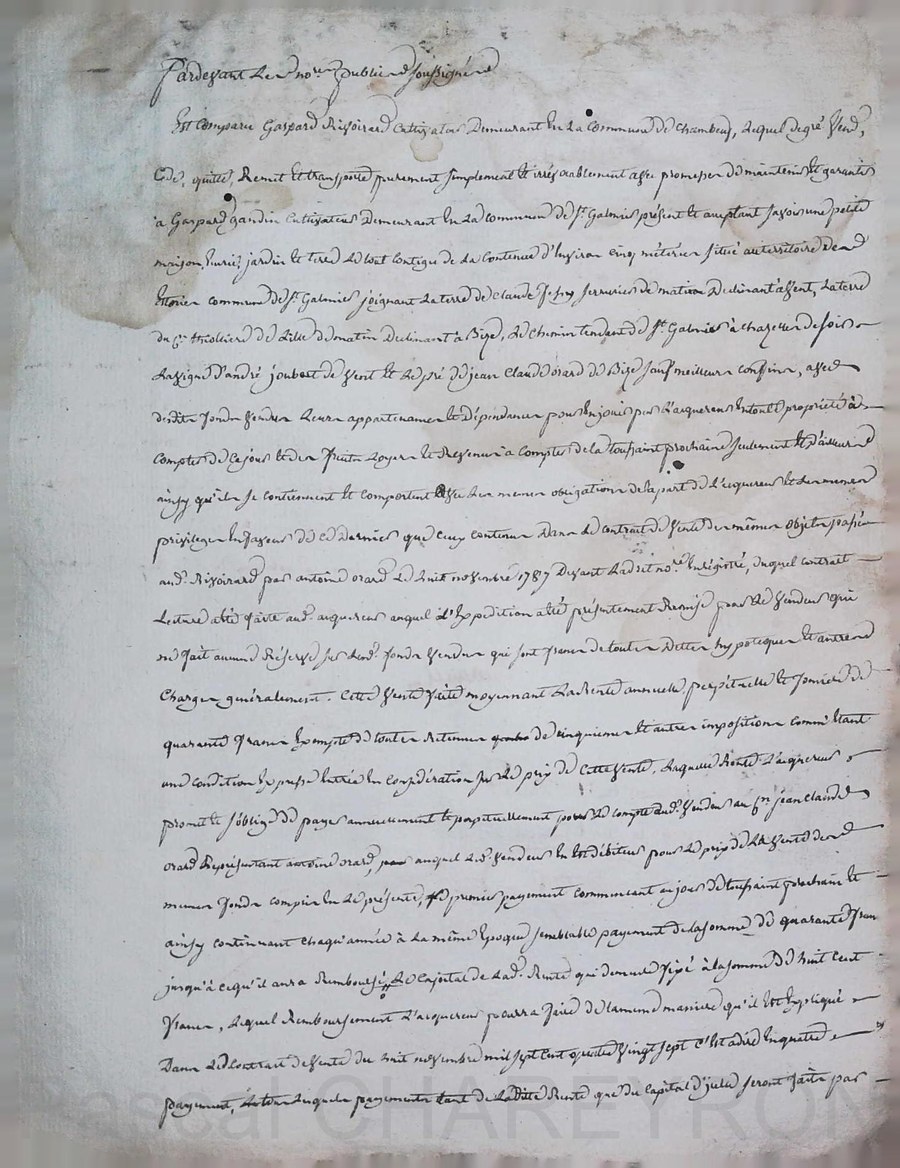 Pardevant Les no.res publics soussignés
Est comparu Gaspard Rivoirard cultivateur Demeurant En La Commune de Chambeuf, Lequel de gré Vend,
Cede, quitte, Remet Et transporte purement simplement Et irrévocablement avec promesse de maintenir Et garantir
à Gaspard gandin Cultivateur Demeurant En La commune de St. Galmier présent Et acceptant savoir une petite
maison, Ecurie, jardin Et terre Le tout contigu de La Contenue d'Environ cinq méterier situé au territoire de
commune de St. Galmier joignant La terre de Claude serrurier de matin Declinant à Vent, La terre
du Cn. thiolliere de L'isle de matin Declinant à Bize, Le chemin tendant de St. Galmier à chazelles de soir
La vigne d'andré joubert de Vent Et Le pré de jean Claude orard de Bize sauf meilleurs confins, avec
desdits fonds Vendus Leurs appartenances Et Dépendances pour En jouir par L'acquereur En toute propriété à
Compter de Ce jour Et des fruits Loyers Et Revenus à Compter de la toussaint prochaine seulement Et d'ailleurs
ainsy qu'ils se contiennent Et comportent avec Les memes obligations de la part de L'acquereur Et Les memes
privileges En faveur de ce Dernier que ceux contenus Dans Le contrat de Vente des mêmes objets passé
aud. Rivoirard par antoine orard Le huit novembre 1787 Devant Ledit no.re Enregistré, duquel contrat
Lecture a été faite aud. acquereur auquel L'Expedition a été présentement Remise par Le Vendeur qui
ne fait aucune Réserve sur Lesd. fonds Vendus qui sont francs de toutes Dettes hypoteques Et autres
Charges généralement. Cette Vente faite moyennant La Rente annuelle, perpétuelle Et fonciere de
quarante francs Exempte de toutes Retenues de cinquiemes Et autres impositions comme Etant
une condition Expresse Entrée En considération sur Le prix de Cette Vente, Laquelle Rente L'acquereur
promet Et s'oblige de payer annuellement Et perpetuellement pour Le compte aud. Vendeur au Cn. jean Claude
orard Représentant antoine orard, auquel Le d. Vendeur En Est débiteur pour Le prix de La Vente des
memes fonds compris En Le présente, Le premier payement commencant au jour de toussaint prochain Et
ainsy continuant chaqu'année à La même Epoque semblable payement de La somme de quarante francs
jusqu'à ce qu'il aura Remboursé Le Capital de Lad. Rente qui demeure fixé à la somme de huit cent
francs, Lequel Remboursement L'acquereur pourra faire de La meme maniere qu'il Est Expliqué
Dans Led Contrat de Vente du huit novembre mil sept cent quatre Vingt sept C'est à dire En quatre
payements, Lesquels payements tant de Ladite Rente que du Capital d'icelle seront faits par
Pascal CHAREYRON